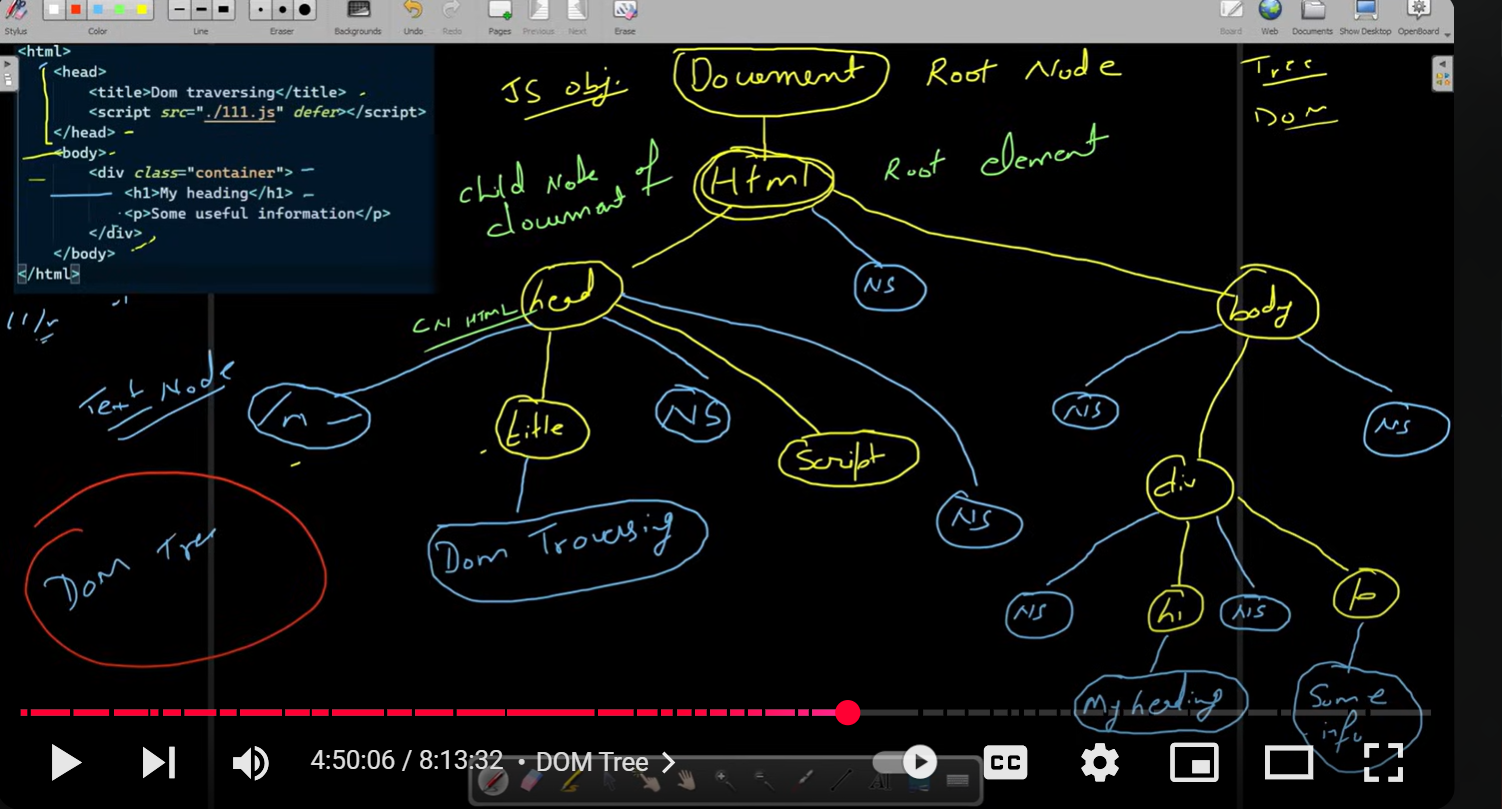 Stylus
Color
Line
Eraser
Backgrounds
Undo
Redo
Pages
Previous
Next
Erase
Board
Web
Documents
Show Desktop
OpenBoard
<html>
<head>
<title>Dom traversing</title>
<script src="./111.js" defer></script>
</head>
<body>
<div class="container">
<h1>My heading</h1>
<p>Some useful information</p>
</div>
</body>
</html>
JS obj.
Document
Root Node
Tree
DOM
Child Node of
document
Html
Root element
head
NS
body
CN HTML
Text Node
/n
title
NS
Script
NS
NS
NS
div
Dom Traversing
DOM Tree
NS
h1
NS
p
My heading
Some
info
4:50:06 / 8:13:32 • DOM Tree
CC